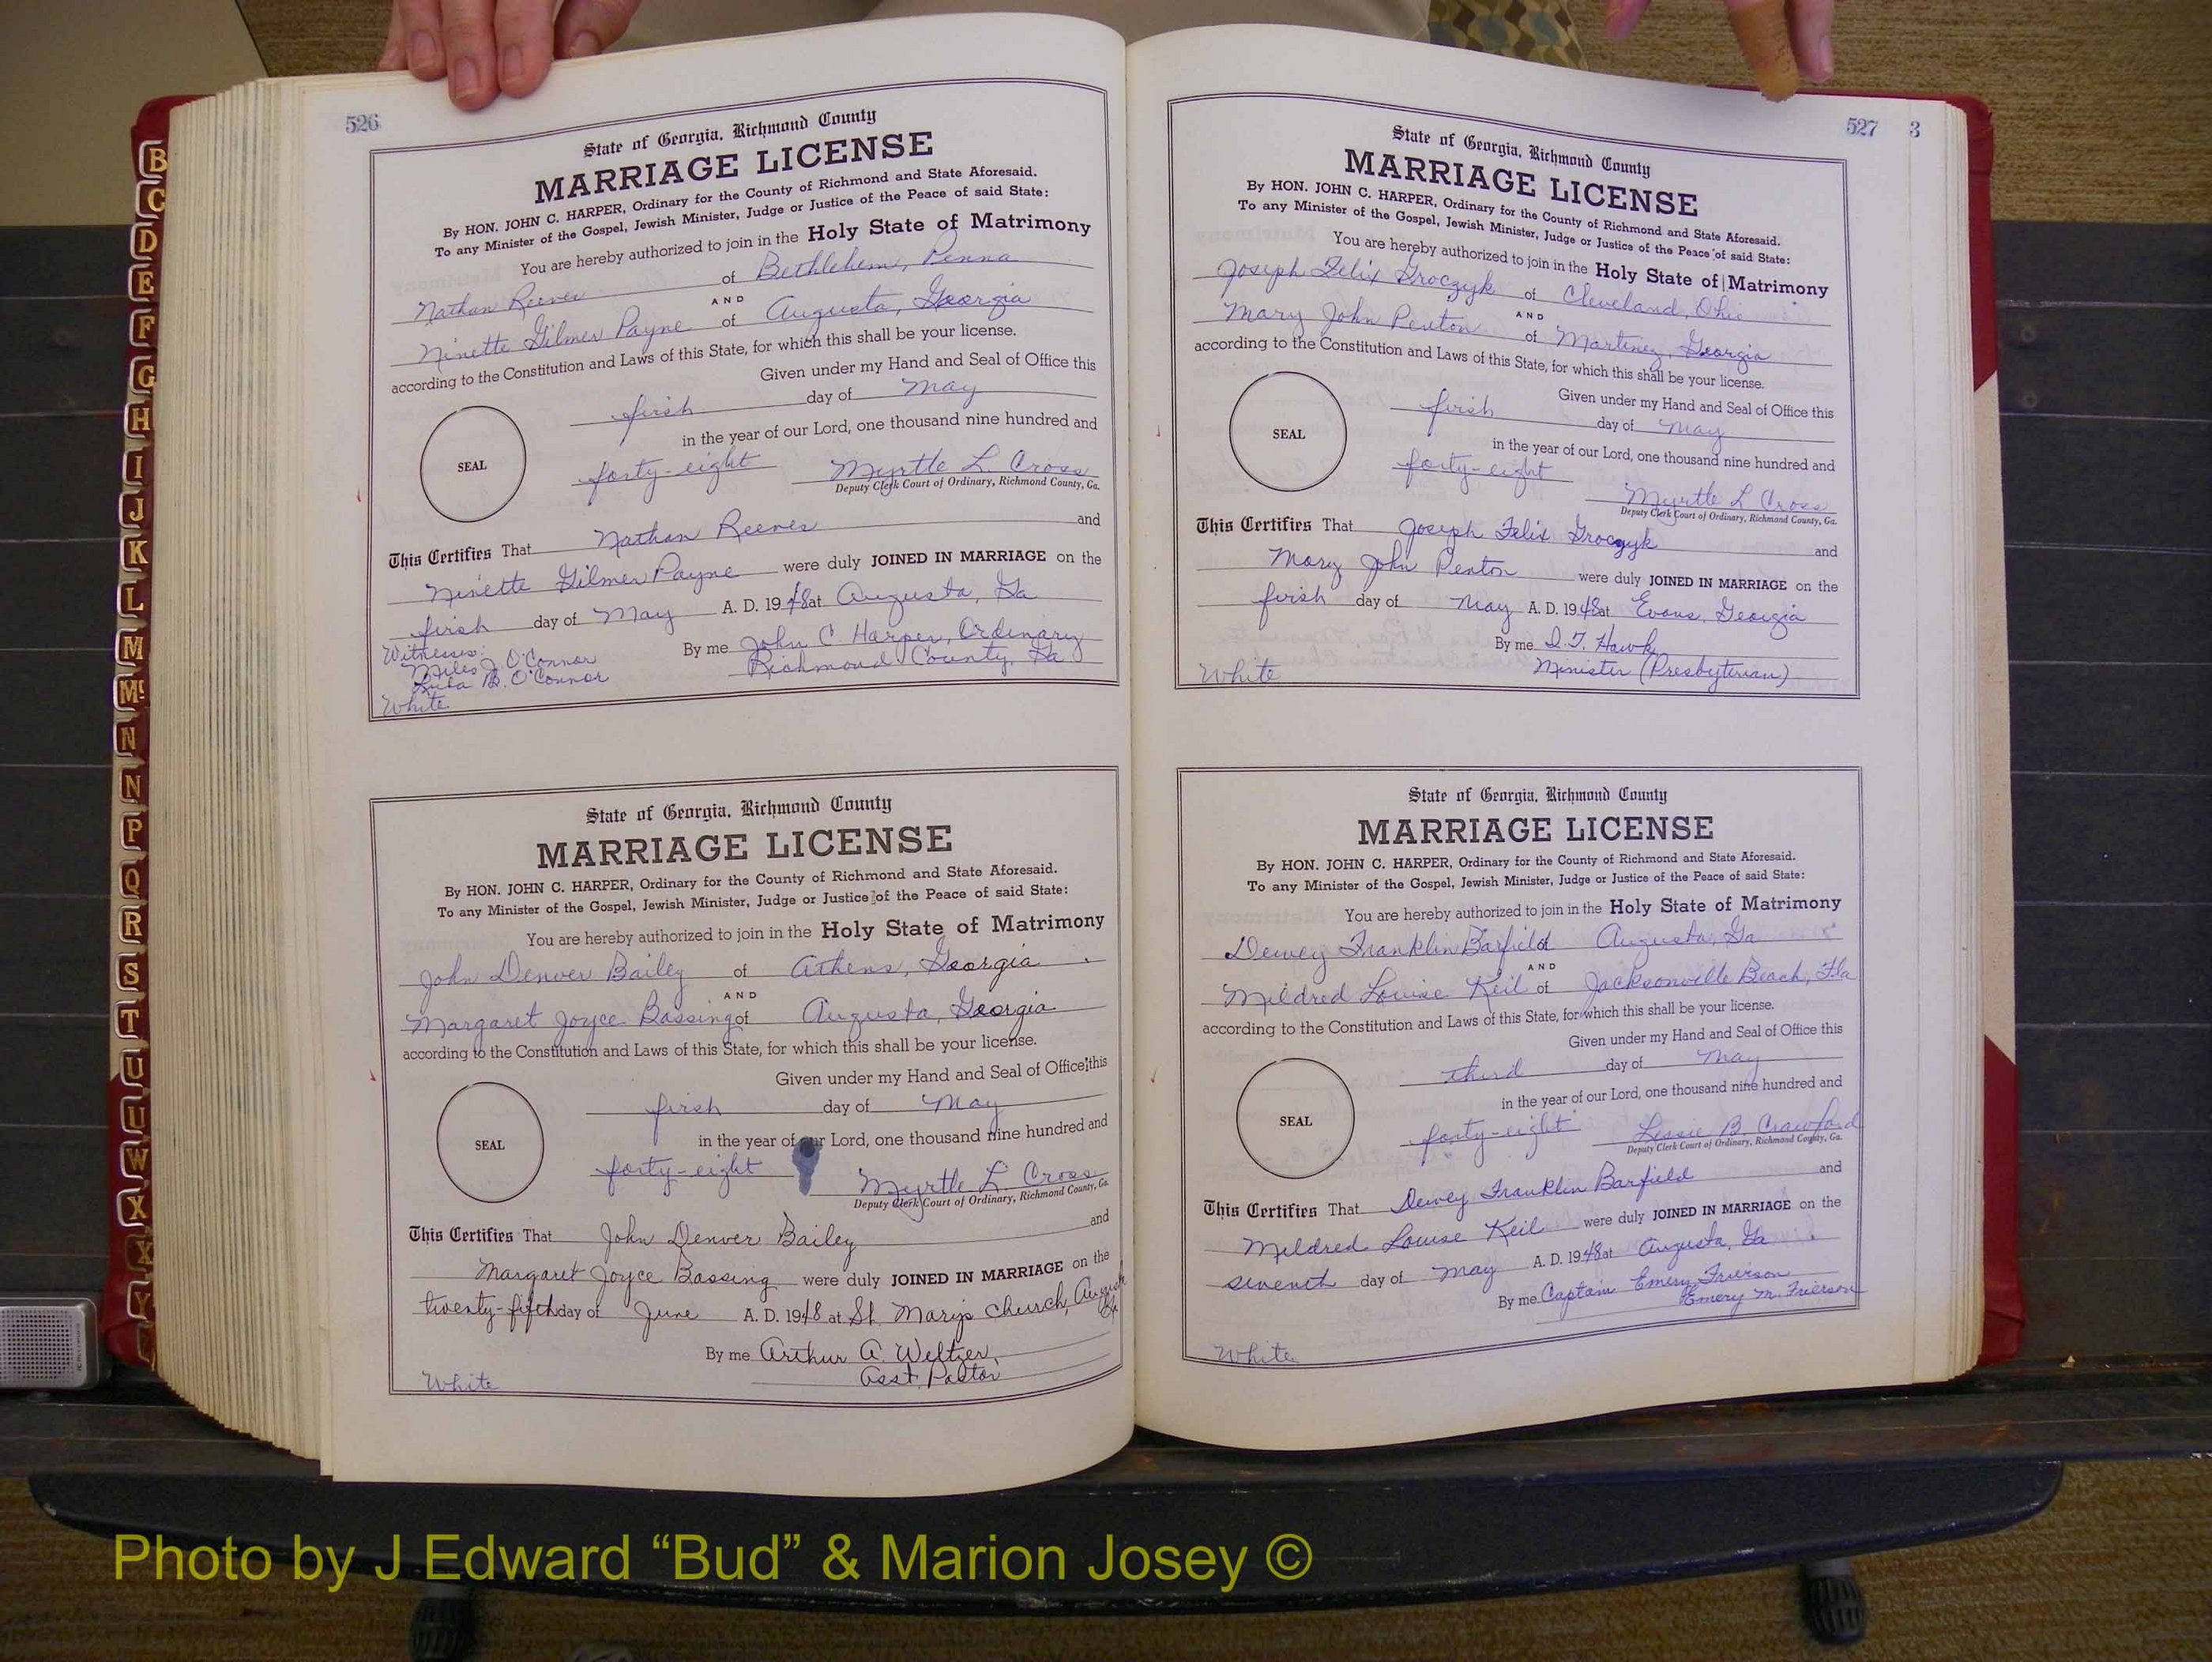 B
C
D
E
F
G
H
I
J
K
L
M
Mc
N
N
P
Q
R
S
T
U
U
W
X
X
Y
526
State of Georgia, Richmond County
MARRIAGE LICENSE
By HON. JOHN C. HARPER, Ordinary for the County of Richmond and State Aforesaid.
To any Minister of the Gospel, Jewish Minister, Judge or Justice of the Peace of said State:
You are hereby authorized to join in the Holy State of Matrimony
Nathan Reeves of Bethlehem, Penna
AND
Ninette Gilmer Payne of Augusta, Georgia
according to the Constitution and Laws of this State, for which this shall be your license.
Given under my Hand and Seal of Office this
first day of May
in the year of our Lord, one thousand nine hundred and
SEAL
forty-eight Myrtle L. Cross
Deputy Clerk Court of Ordinary, Richmond County, Ga.
This Certifies That Nathan Reeves and
Ninette Gilmer Payne were duly JOINED IN MARRIAGE on the
first day of May A. D. 1948 at Augusta, Ga
By me John C. Harper, Ordinary
Richmond County, Ga
Witnesses:
Miles J. O'Connor
B. O'Connor
White
State of Georgia, Richmond County
MARRIAGE LICENSE
By HON. JOHN C. HARPER, Ordinary for the County of Richmond and State Aforesaid.
To any Minister of the Gospel, Jewish Minister, Judge or Justice of the Peace of said State:
You are hereby authorized to join in the Holy State of Matrimony
John Denver Bailey of Athens, Georgia
AND
Margaret Joyce Bassing of Augusta, Georgia
according to the Constitution and Laws of this State, for which this shall be your license.
Given under my Hand and Seal of Office this
first day of May
in the year of our Lord, one thousand nine hundred and
SEAL
forty-eight Myrtle L. Cross
Deputy Clerk Court of Ordinary, Richmond County, Ga.
This Certifies That John Denver Bailey and
Margaret Joyce Bassing were duly JOINED IN MARRIAGE on the
twenty-fifth day of June A. D. 1948 at St. Mary's Church, August
Ga
By me Arthur A. Weltzer,
Asst. Pastor
White
527 3
State of Georgia, Richmond County
MARRIAGE LICENSE
By HON. JOHN C. HARPER, Ordinary for the County of Richmond and State Aforesaid.
To any Minister of the Gospel, Jewish Minister, Judge or Justice of the Peace of said State:
You are hereby authorized to join in the Holy State of Matrimony
Joseph Felix Groczyk of Cleveland, Ohio
AND
Mary John Penton of Martinez, Georgia
according to the Constitution and Laws of this State, for which this shall be your license.
Given under my Hand and Seal of Office this
first day of May
in the year of our Lord, one thousand nine hundred and
SEAL
forty-eight Myrtle L Cross
Deputy Clerk Court of Ordinary, Richmond County, Ga.
This Certifies That Joseph Felix Groczyk and
Mary John Penton were duly JOINED IN MARRIAGE on the
first day of May A. D. 1948 at Evans, Georgia
By me Hawk
Minister (Presbyterian)
White
State of Georgia, Richmond County
MARRIAGE LICENSE
By HON. JOHN C. HARPER, Ordinary for the County of Richmond and State Aforesaid.
To any Minister of the Gospel, Jewish Minister, Judge or Justice of the Peace of said State:
You are hereby authorized to join in the Holy State of Matrimony
Dewey Franklin Barfield of Augusta, Ga
AND
Mildred Louise Keil of Jacksonville Beach, Fla
according to the Constitution and Laws of this State, for which this shall be your license.
Given under my Hand and Seal of Office this
third day of May
in the year of our Lord, one thousand nine hundred and
SEAL
forty-eight Lessie B Crawford
Deputy Clerk Court of Ordinary, Richmond County, Ga.
This Certifies That Dewey Franklin Barfield and
Mildred Louise Keil were duly JOINED IN MARRIAGE on the
seventh day of May A. D. 1948 at Augusta, Ga
By me Captain Emery Frierson
Emery M. Frierson
White
Photo by J Edward “Bud” & Marion Josey ©